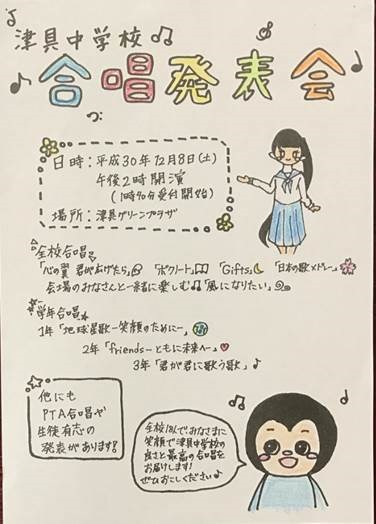 津具中学校
合唱発表会
日時：平成30年12月8日(土)
午後2時開演
場所：津具グリーンプラザ
全校合唱
「心の翼 君があげたら」 「ポクリート」 「Gifts」 「日本の歌メドレー」
会場のみなさんと一緒に楽しむ 「風になりたい」
学年合唱
1年「地球星歌ー笑顔のためにー」
2年「friendsーともに未来へー」
3年「君が君に歌う歌」
他にも
PTA合唱や
生徒有志の
発表があります！
みなさまに
笑顔で津具中学校の
良さと最高の合唱を
お届けします！
ぜひおこしください